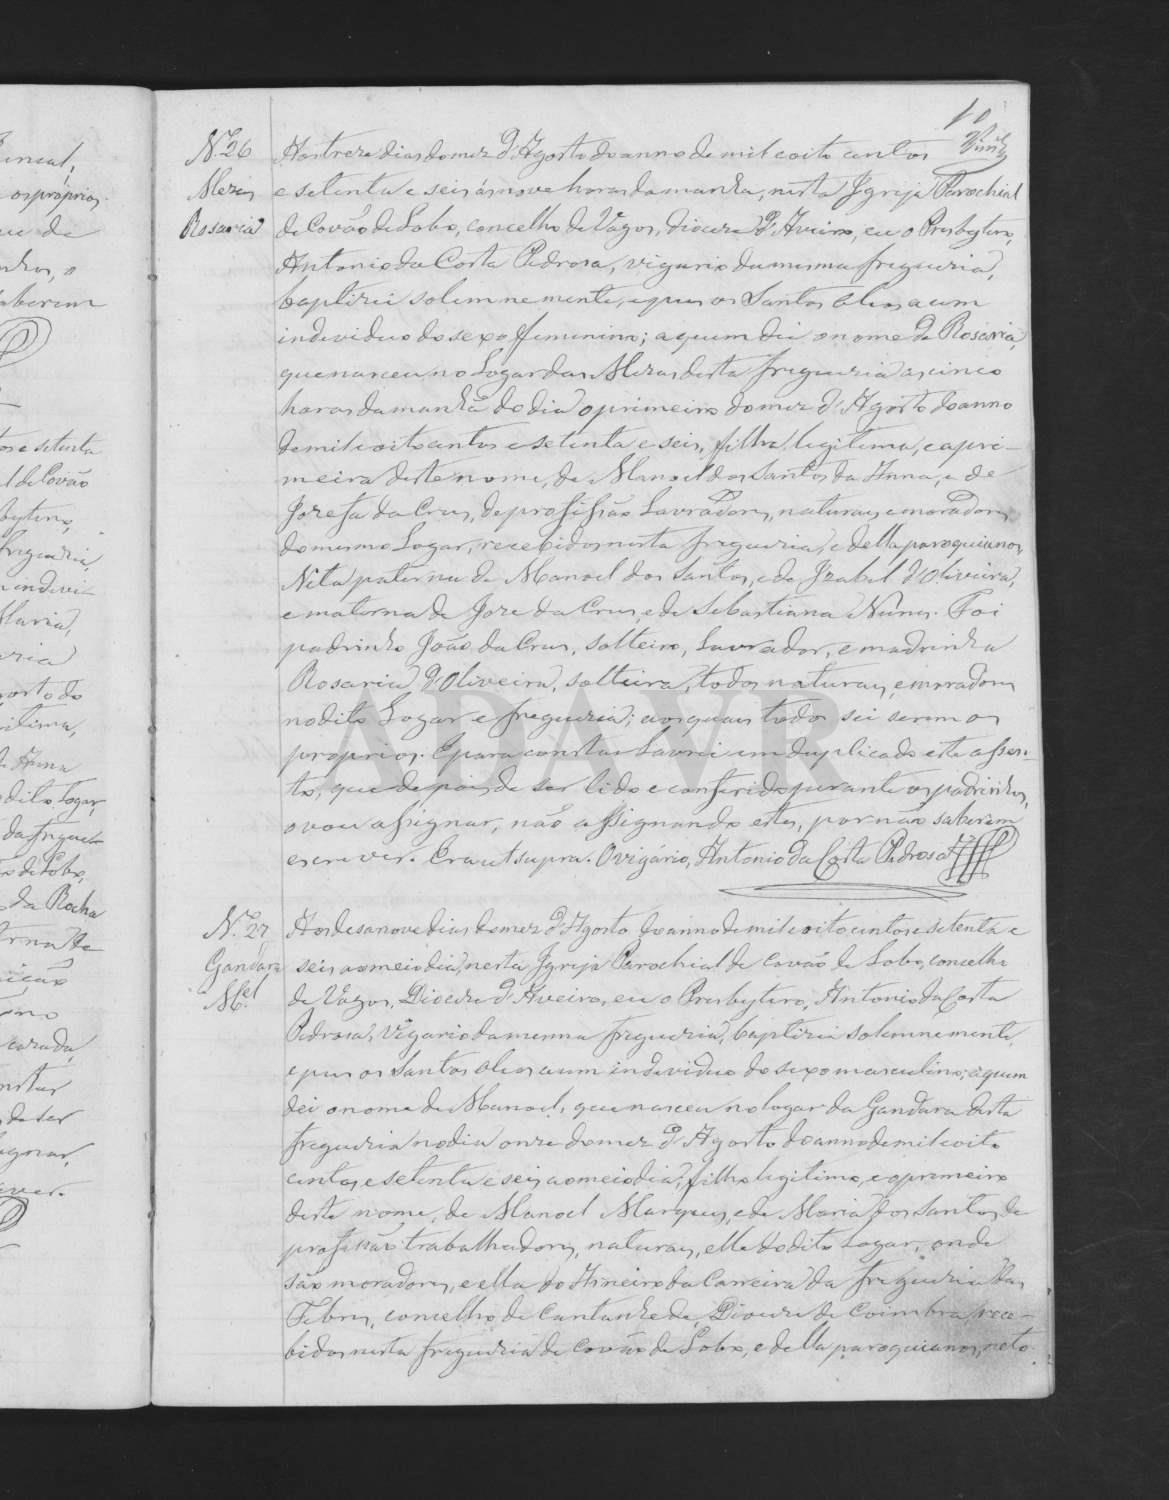 10
N.º 26
Mezas
Rosaria
Aos treze dias do mez d'Agosto do anno de mil e oito centos
e setenta e seis ás nove horas da manha, nesta Igreja Parochial
de Covão de Lobo, concelho de Vagos, Diocese d'Aveiro, eu o Presbytero,
Antonio da Costa Pedrosa, vigario da mesma freguezia,
baptizei solemnemente, e puz os Santos Oleos a um
individuo do sexo femenino; a quem dei o nome de Rosaria,
que nasceu no Logar das Mezas desta freguezia as cinco
horas da manhã do dia o primeiro do mez d'Agosto do anno
de mil e oito centos e setenta e seis, filha legitima, e a pri-
meira deste nome, de Manoel dos Santos da Anna, e de
Jozefa da Cruz, de profissão Lavradores, naturaes e moradores
do mesmo Logar, recebidos nesta freguezia, e della paroquianos,
Neta paterna de Manoel dos Santos, e de Izabel d'Oliveira,
e materna de Joze da Cruz, e de Sebastiana Nunes. Foi
padrinho João da Cruz, solteiro, Lavrador, e madrinha
Rosaria d'Oliveira, solteira, todos naturaes, e moradores
no dito Logar e freguezia; aos quaes todos sei serem os
proprios. E para constar Lavrei em duplicado este assen-
to, que depois de ser lido e conferido perante os padrinhos,
o vou assignar, não assignando estes, por não saberem
escrever. Era ut supra. O vigário, Antonio da Costa Pedrosa
N.º 27
Gandara
M.el
Aos desanove dias do mez d'Agosto do anno de mil e oito centos e setenta e
seis ao meio dia, nesta Igreja Parochial de Covão de Lobo, concelho
de Vagos, Diocese d'Aveiro, eu o Presbytero, Antonio da Costa
Pedrosa, Vigario da mesma freguezia, baptizei solemnemente,
e puz os Santos Oleos a um individuo do sexo masculino; a quem
dei o nome de Manoel, que nasceu no logar da Gandara desta
freguezia no dia onze do mez d'Agosto do anno de mil e oito
centos e setenta e seis ao meio dia, filho legitimo, e o primeiro
deste nome, de Manoel Marques, e de Maria dos Santos, de
profissão trabalhadores, naturaes, elle do dito Logar, onde
são moradores, e ella do da Carreira da freguezia das
Febres, concelho de Cantanhede, Diocese de Coimbra, rece-
bidos nesta freguezia de Covão de Lobo, e della paroquianos, neto
ADAVR